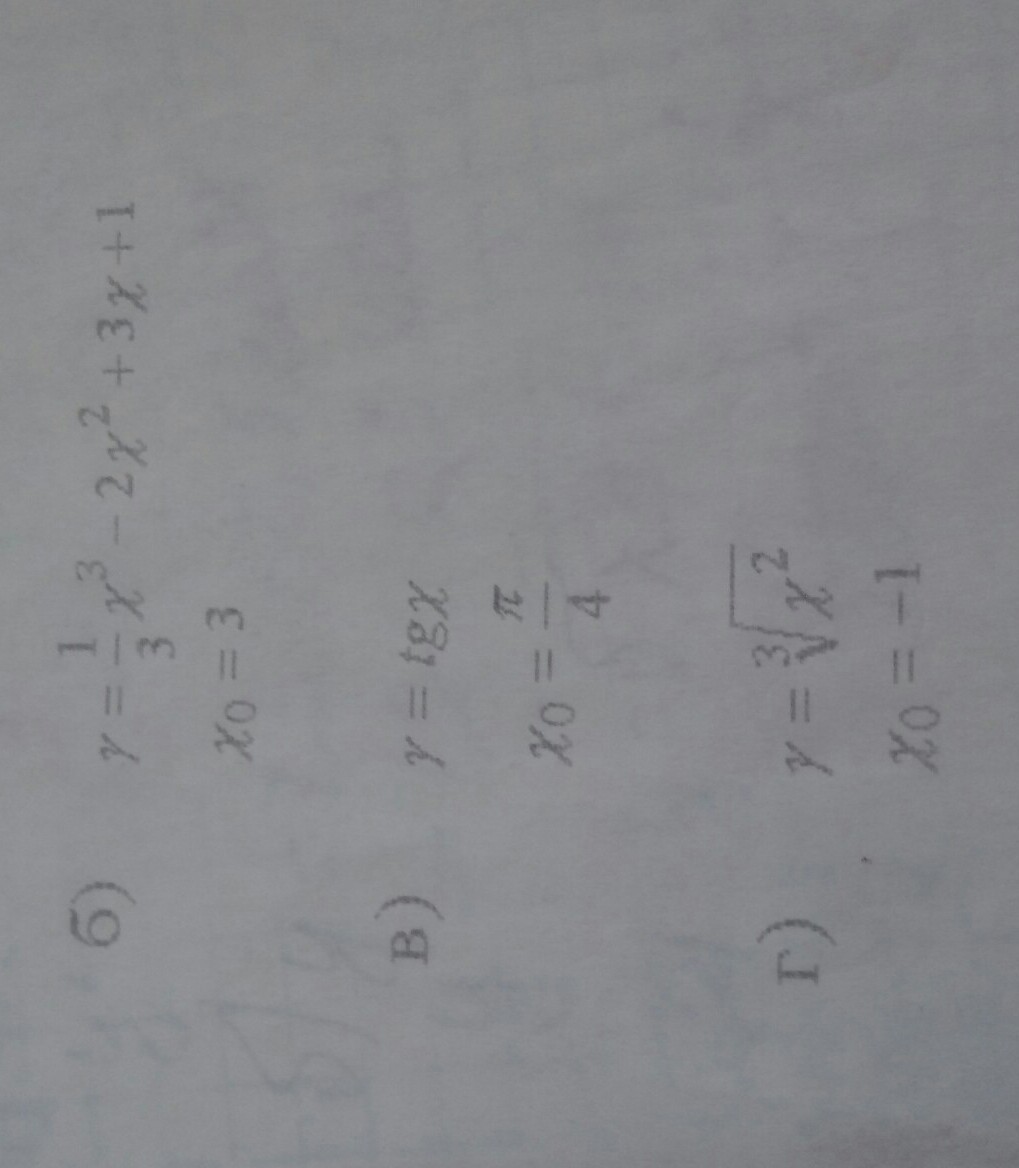 б) y = \frac{1}{3}x^3 - 2x^2 + 3x + 1
x_0 = 3
в) y = tgx
x_0 = \frac{π}{4}
г) y = \sqrt[3]{x^2}
x_0 = -1